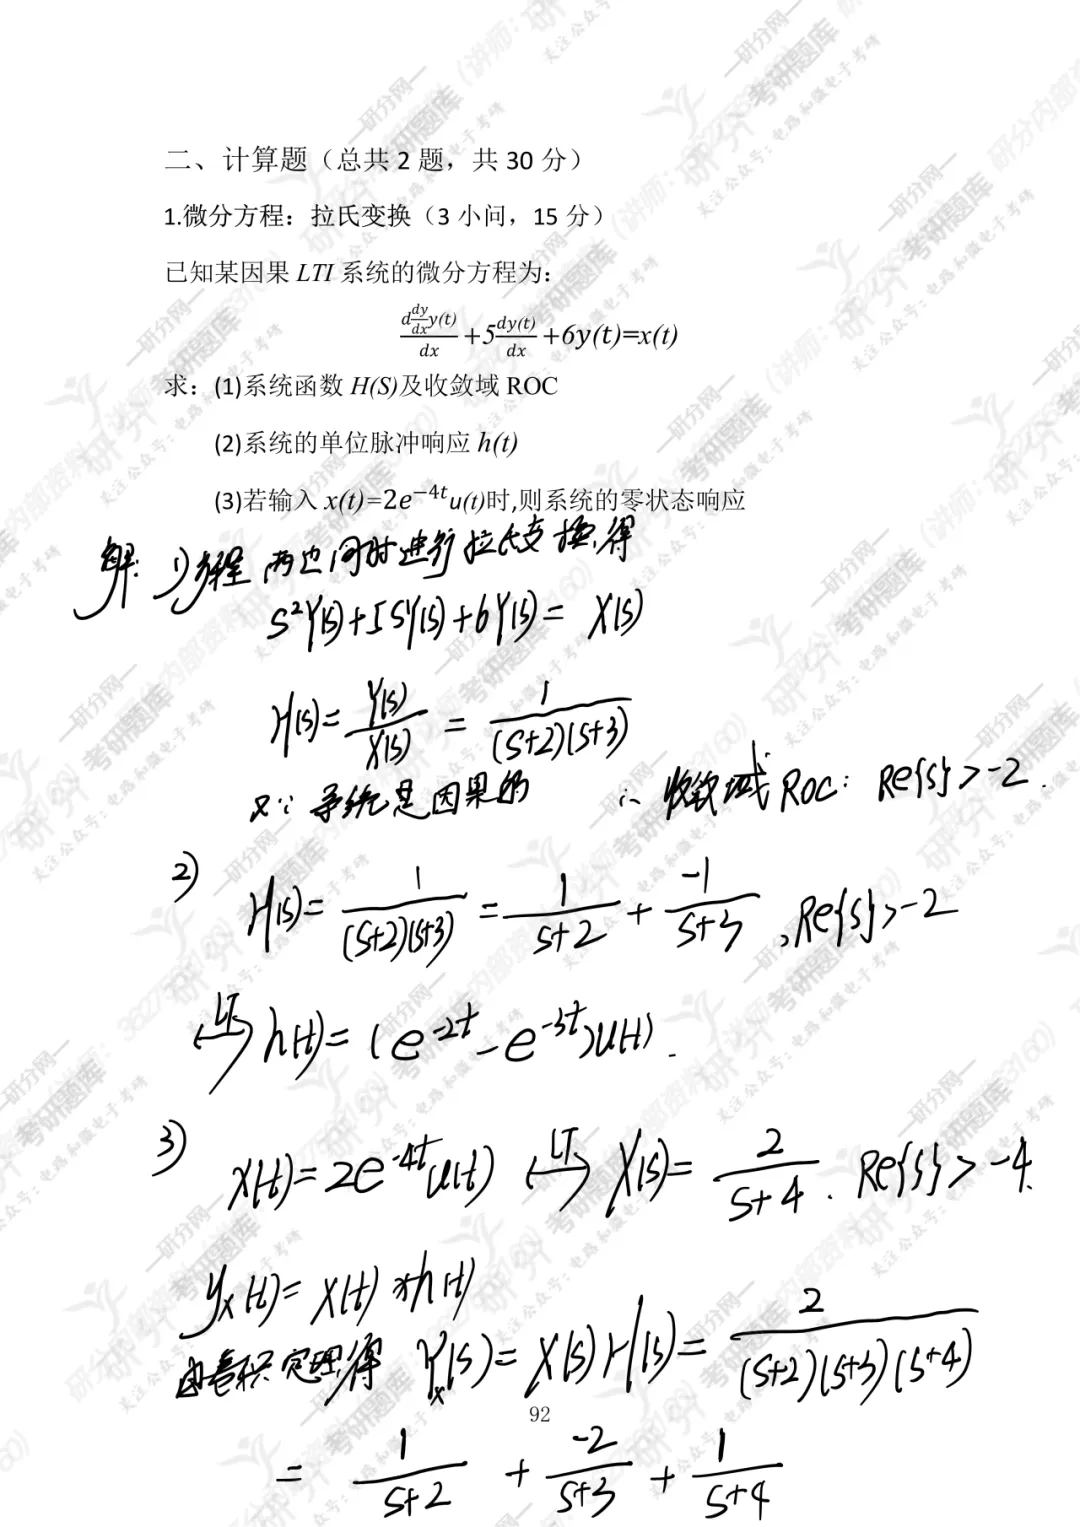 二、计算题（总共 2 题，共 30 分）
1.微分方程：拉氏变换（3 小问，15 分）
已知某因果 LTI 系统的微分方程为：
d\frac{dy}{dx}y(t)/dx +5 dy(t)/dx +6y(t)=x(t)
求：(1)系统函数 H(S)及收敛域 ROC
(2)系统的单位脉冲响应 h(t)
(3)若输入 x(t)=2e^{-4t}u(t)时,则系统的零状态响应
解: 1)方程两边同时进行拉氏变换得
S²Y(s)+5SY(s)+6Y(s)= X(s)
H(s)= Y(s)/X(s) = 1/((S+2)(S+3))
又∵系统是因果的 ∴收敛域 ROC: Re{s}>-2.
2) H(s)= 1/((S+2)(S+3)) = 1/(S+2) + -1/(S+3) , Re{s}>-2
LT h(t)= (e^{-2t}-e^{-3t})u(t).
3) x(t)=2e^{-4t}u(t) LT X(s)= 2/(S+4) . Re{s}>-4.
yx(t)= x(t)*h(t)
由卷积定理得 Yx(s)= X(s)H(s)= 2/((S+2)(S+3)(S+4))
92
= 1/(S+2) + -2/(S+3) + 1/(S+4)
研分网
考研题库
关注公众号：电路和微电子考研